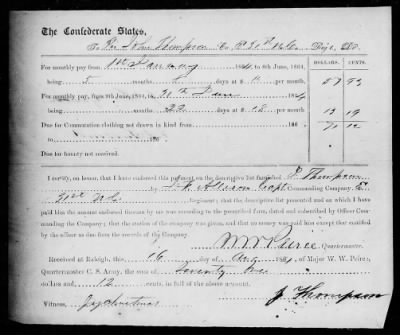 The Confederate States,
To Pvt John Thompson Co B 31st N.C. Regt. Dr.
DOLLARS. CENTS.
For monthly pay from 1st January 1864 to 8th June, 1864,
being 5 months 8 days at $ 11 per month, 57 93
For monthly pay, from 8th June, 1864, to 30th June 1864
being 22 days at $ 18 per month, 13 19
Due for Commutation clothing not drawn in kind from 186 71 12
to 186
Due for bounty not received.
I certify, on honor, that I have endorsed this payment on the descriptive list furnished J Thompson
by Capt. Commanding Company
31st N.C. Regiment; that the descriptive list presented and on which I have
paid him the amount endorsed thereon by me was according to the prescribed form, dated and subscribed by Officer Com-
manding the Company; that the station of the company was given, and that no money was paid him except that certified
by the officer as due from the records of the Company.
W W Peirce, Quartermaster.
Received at Raleigh, this 16 day of Aug 1864, of Major W. W. Peirce,
Quartermaster C. S. Army, the sum of Seventy One
dollars and 12 cents, in full of the above amount.
J Thompson
Witness,